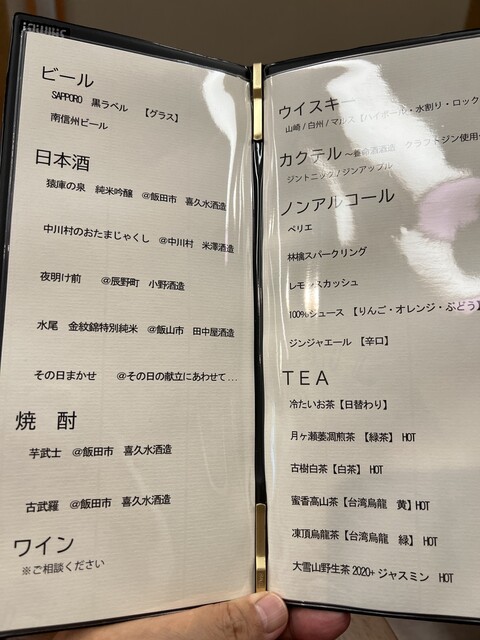 ビール
SAPPORO 黒ラベル 【グラス】
南信州ビール
日本酒
猿庫の泉 純米吟醸 @飯田市 喜久水酒造
中川村のおたまじゃくし @中川村 米澤酒造
夜明け前 @辰野町 小野酒造
水尾 金紋錦特別純米 @飯山市 田中屋酒造
その日まかせ @その日の献立にあわせて...
焼酎
芋武士 @飯田市 喜久水酒造
古武羅 @飯田市 喜久水酒造
ワイン
※ご相談ください
ウイスキー
山崎/白州/マルス【ハイボール・水割り・ロック
カクテル ~養命酒酒造 クラフトジン使用~
ジントニック/ジンアップル
ノンアルコール
ペリエ
林檎スパークリング
レモンスカッシュ
100%ジュース 【りんご・オレンジ・ぶどう】
ジンジャエール 【辛口】
TEA
冷たいお茶【日替わり】
月ヶ瀬萎凋煎茶 【緑茶】 HOT
古樹白茶【白茶】 HOT
蜜香高山茶【台湾烏龍 黄】HOT
凍頂烏龍茶【台湾烏龍 緑】 HOT
大雪山野生茶 2020+ジャスミン HOT